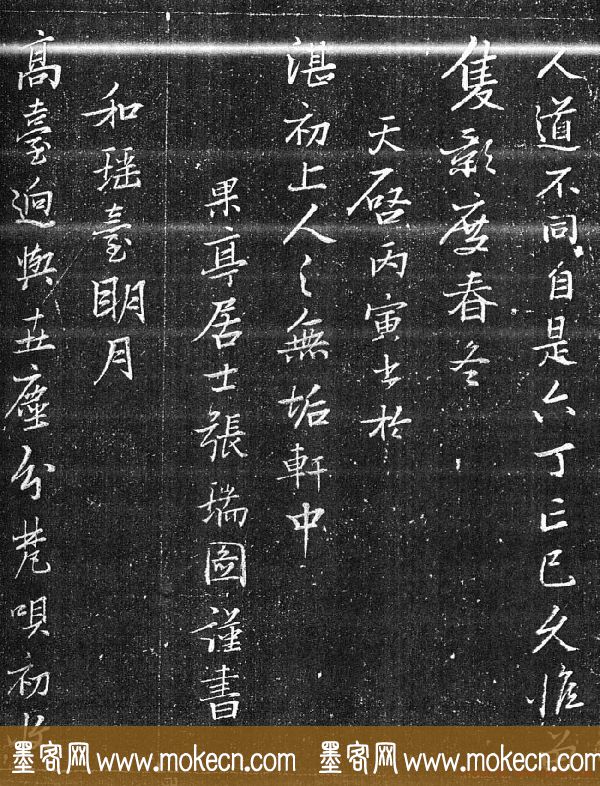 人道不同自是六丁亡已久惟
隻影度春冬
天啓丙寅書於
湛初上人之無垢軒中
果亭居士張瑞圖謹書
和瑶臺明月
高臺迥與世塵分梵唄初
墨客网 www.mokecn.com 墨客网 www.mokecn.com